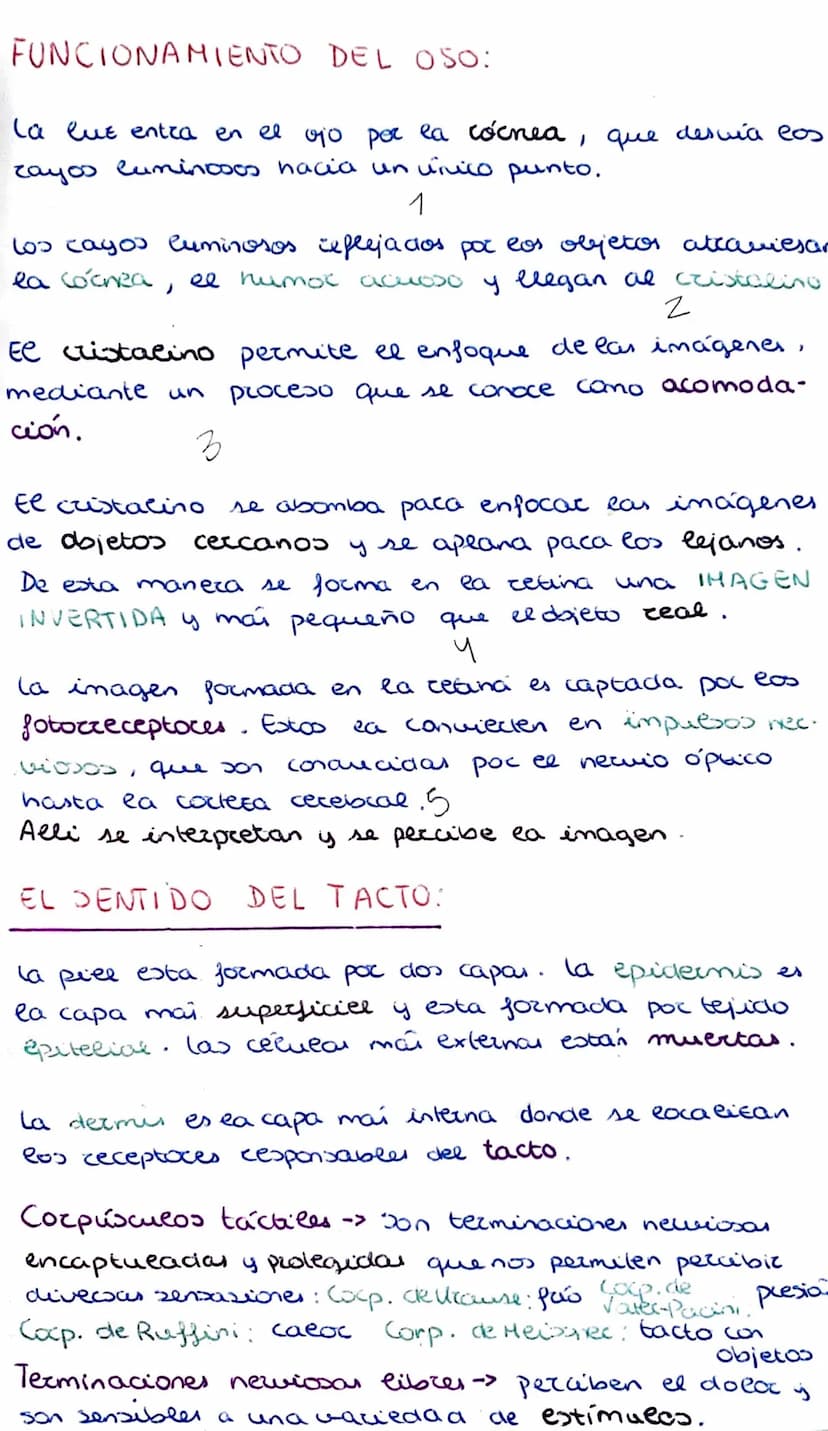 FUNCIONAMIENTO DEL OJO:
La luz entra en el ojo por la córnea, que desvía los
rayos luminosos hacia un único punto.
1
Los rayos luminosos reflejados por los objetos atraviesan
la córnea, el humor acuoso y llegan al cristalino
2
El cristalino permite el enfoque de las imágenes,
mediante un proceso que se conoce como acomoda-
ción.
3
El cristalino se abomba para enfocar las imágenes
de objetos cercanos y se aplana para los lejanos.
De esta manera se forma en la retina una IMAGEN
INVERTIDA y más pequeño que el objeto real.
4
La imagen formada en la retina es captada por los
fotorreceptores. Estos la convierten en impulsos ner-
viosos, que son conducidas por el nervio óptico
hasta la corteza cerebral. 5
Alli se interpretan y se percibe la imagen.
EL SENTIDO DEL TACTO:
La piel esta formada por dos capas. La epidermis es
la capa más superficiel y esta formada por tejido
epitelial. Las células más externas están muertas.
La dermis es la capa más interna donde se localizan
los receptores responsables del tacto.
Corpúsculos táctiles -> Son terminaciones nerviosas
encaptuladas y protegidas que nos permiten percibir
diversas sensaciones: Corp. de Krause: frío Corp. de Vater-Pacini: presió
Corp. de Ruffini: calor Corp. de Meissner: tacto con
objetos
Terminaciones nerviosas libres -> perciben el dolor y
son sensibles a una variedad de estímulos.